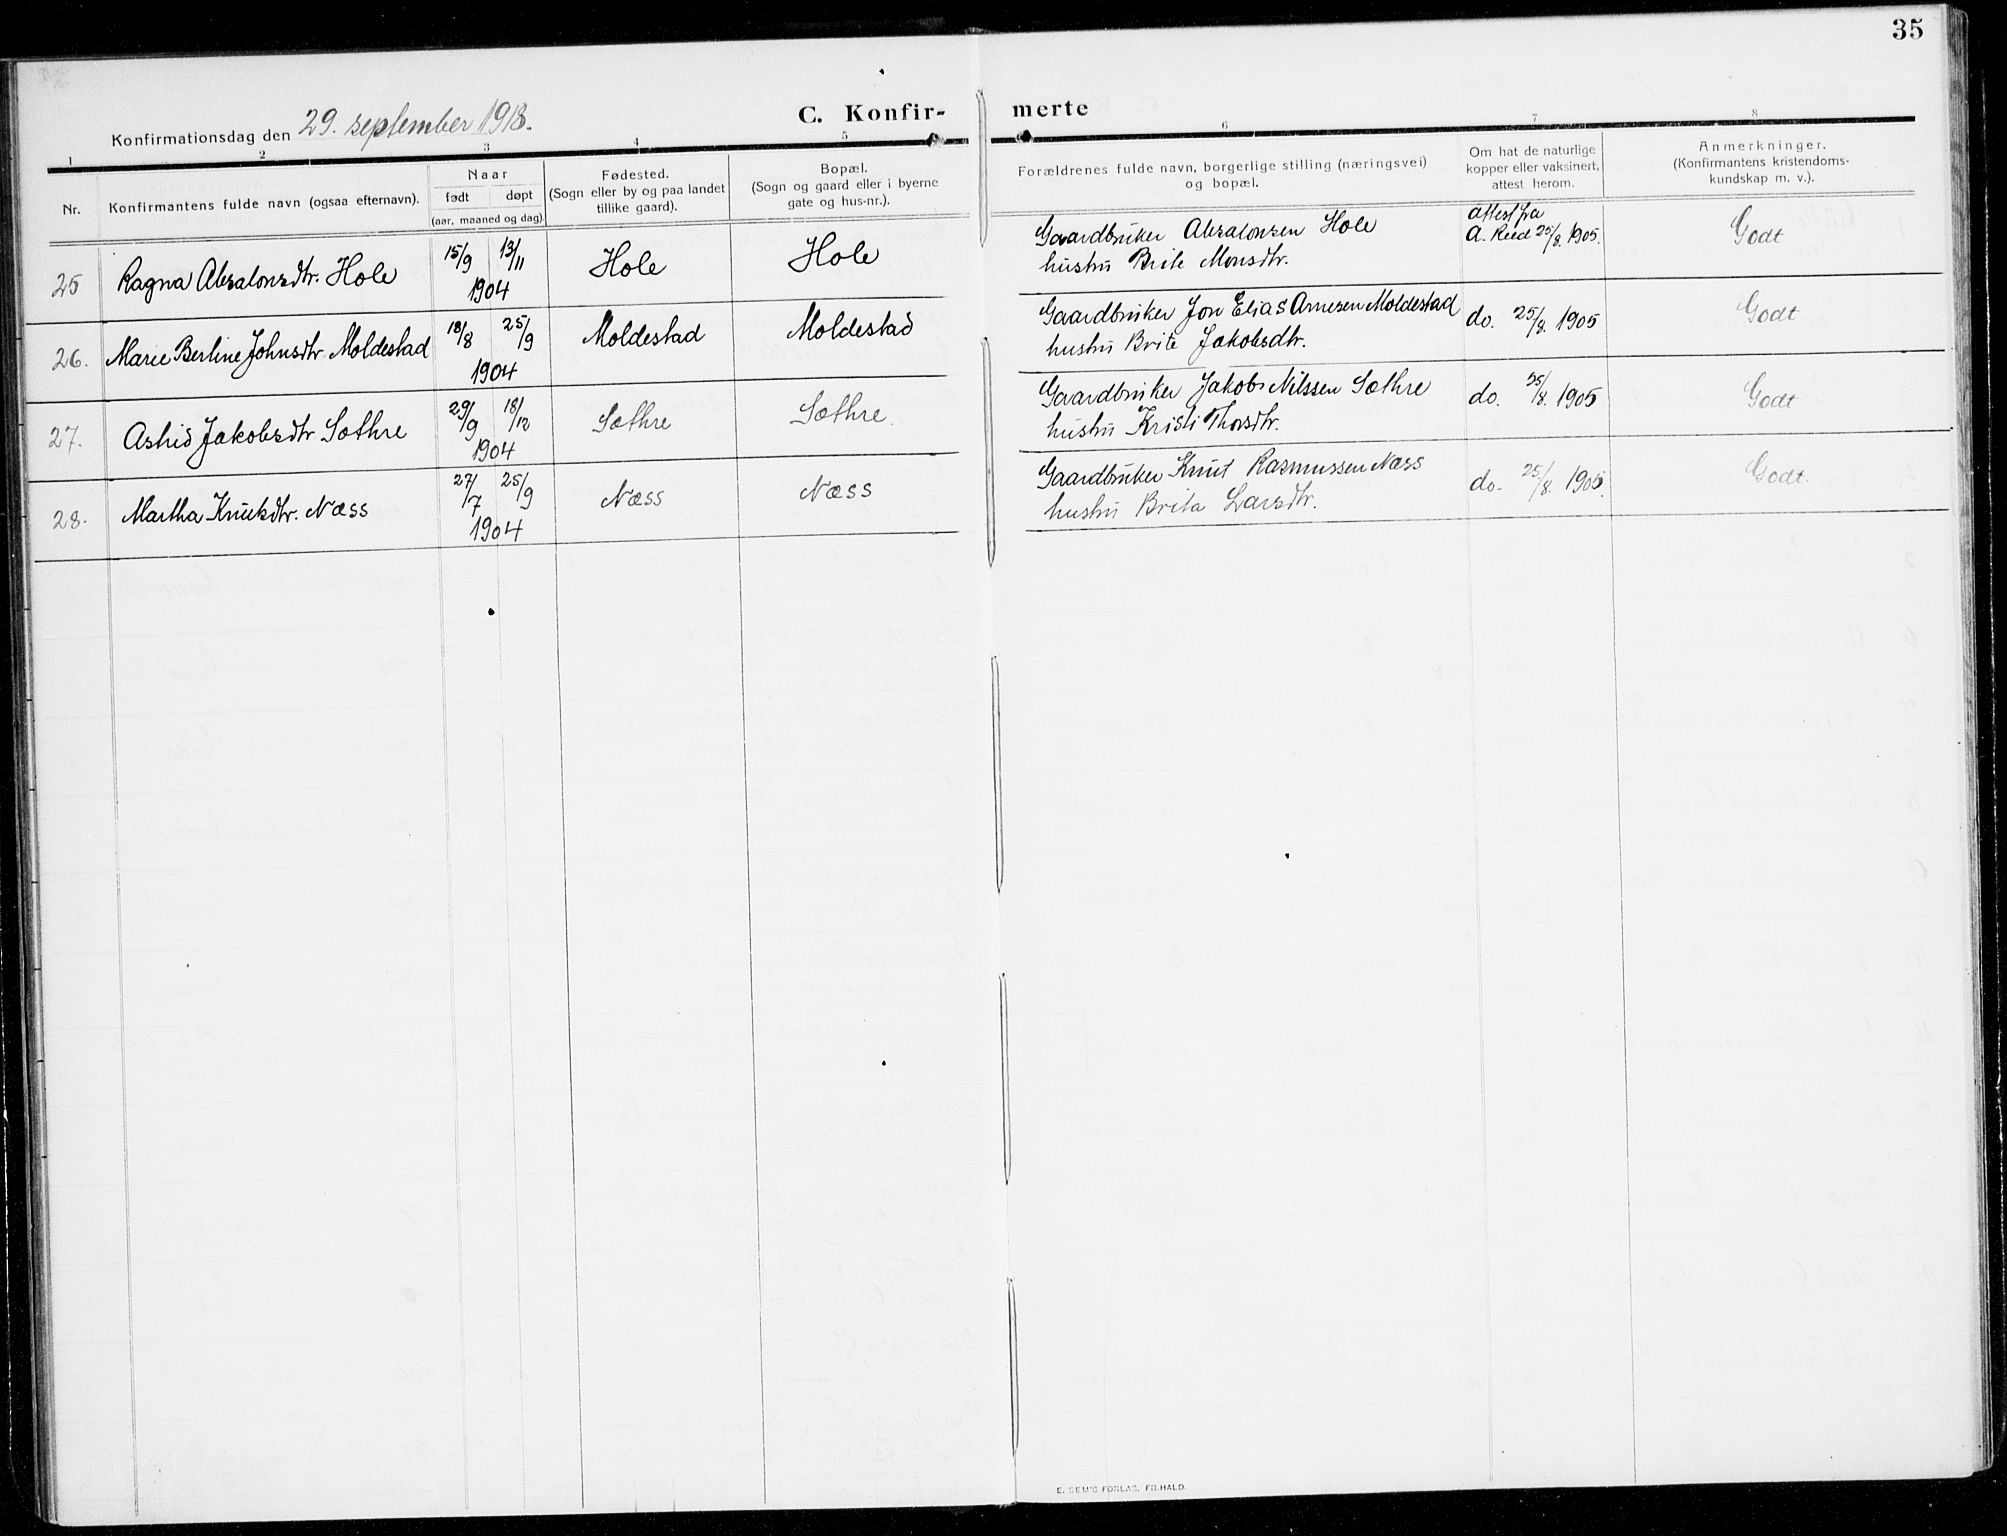 35
Konfirmationsdag den 29. september 1918.
C. Konfir-
merte
1 2 3 4 5 6 7 8
Nr.
Konfirmantens fulde navn (ogsaa efternavn).
Naar
født døpt
(aar, maaned og dag).
Fødested.
(Sogn eller by og paa landet
tillike gaard).
Bopæl.
(Sogn og gaard eller i byerne
gate og hus-nr.).
Forældrenes fulde navn, borgerlige stilling (næringsvei)
og bopæl.
Om hat de naturlige
kopper eller vaksinert,
attest herom.
Anmerkninger.
(Konfirmantens kristendoms-
kundskap m. v.).
25 Ragna Absalonsdtr. Hole 15/9 13/11 1904 Hole Hole
Gaardbruker Absalonsen Hole
hustru Brite Monsdtr.
attest fra
A. Reed 25/8. 1905.
Godt
26. Marie Berline Johnsdtr Moldestad 18/8 25/9 1904 Moldestad Moldestad
Gaardbruker Jon Elias Arnesen Moldestad
hustru Brite Jakobsdtr.
do. 25/8. 1905
Godt
27. Astrid Jakobsdtr Sæthre 29/9 18/12 1904 Sæthre Sæthre.
Gaardbruker Jakob Nilssen Sæthre
hustru Kristi Thorsdtr.
do. 25/8. 1905
Godt
28. Martha Knutsdtr. Næss 27/7 25/9 1904 Næss Næss
Gaardbruker Knut Rasmussen Næss
hustru Brita Larsdtr.
do. 25/8. 1905.
Godt.
E. SEM'S FORLAG, FR.HALD.